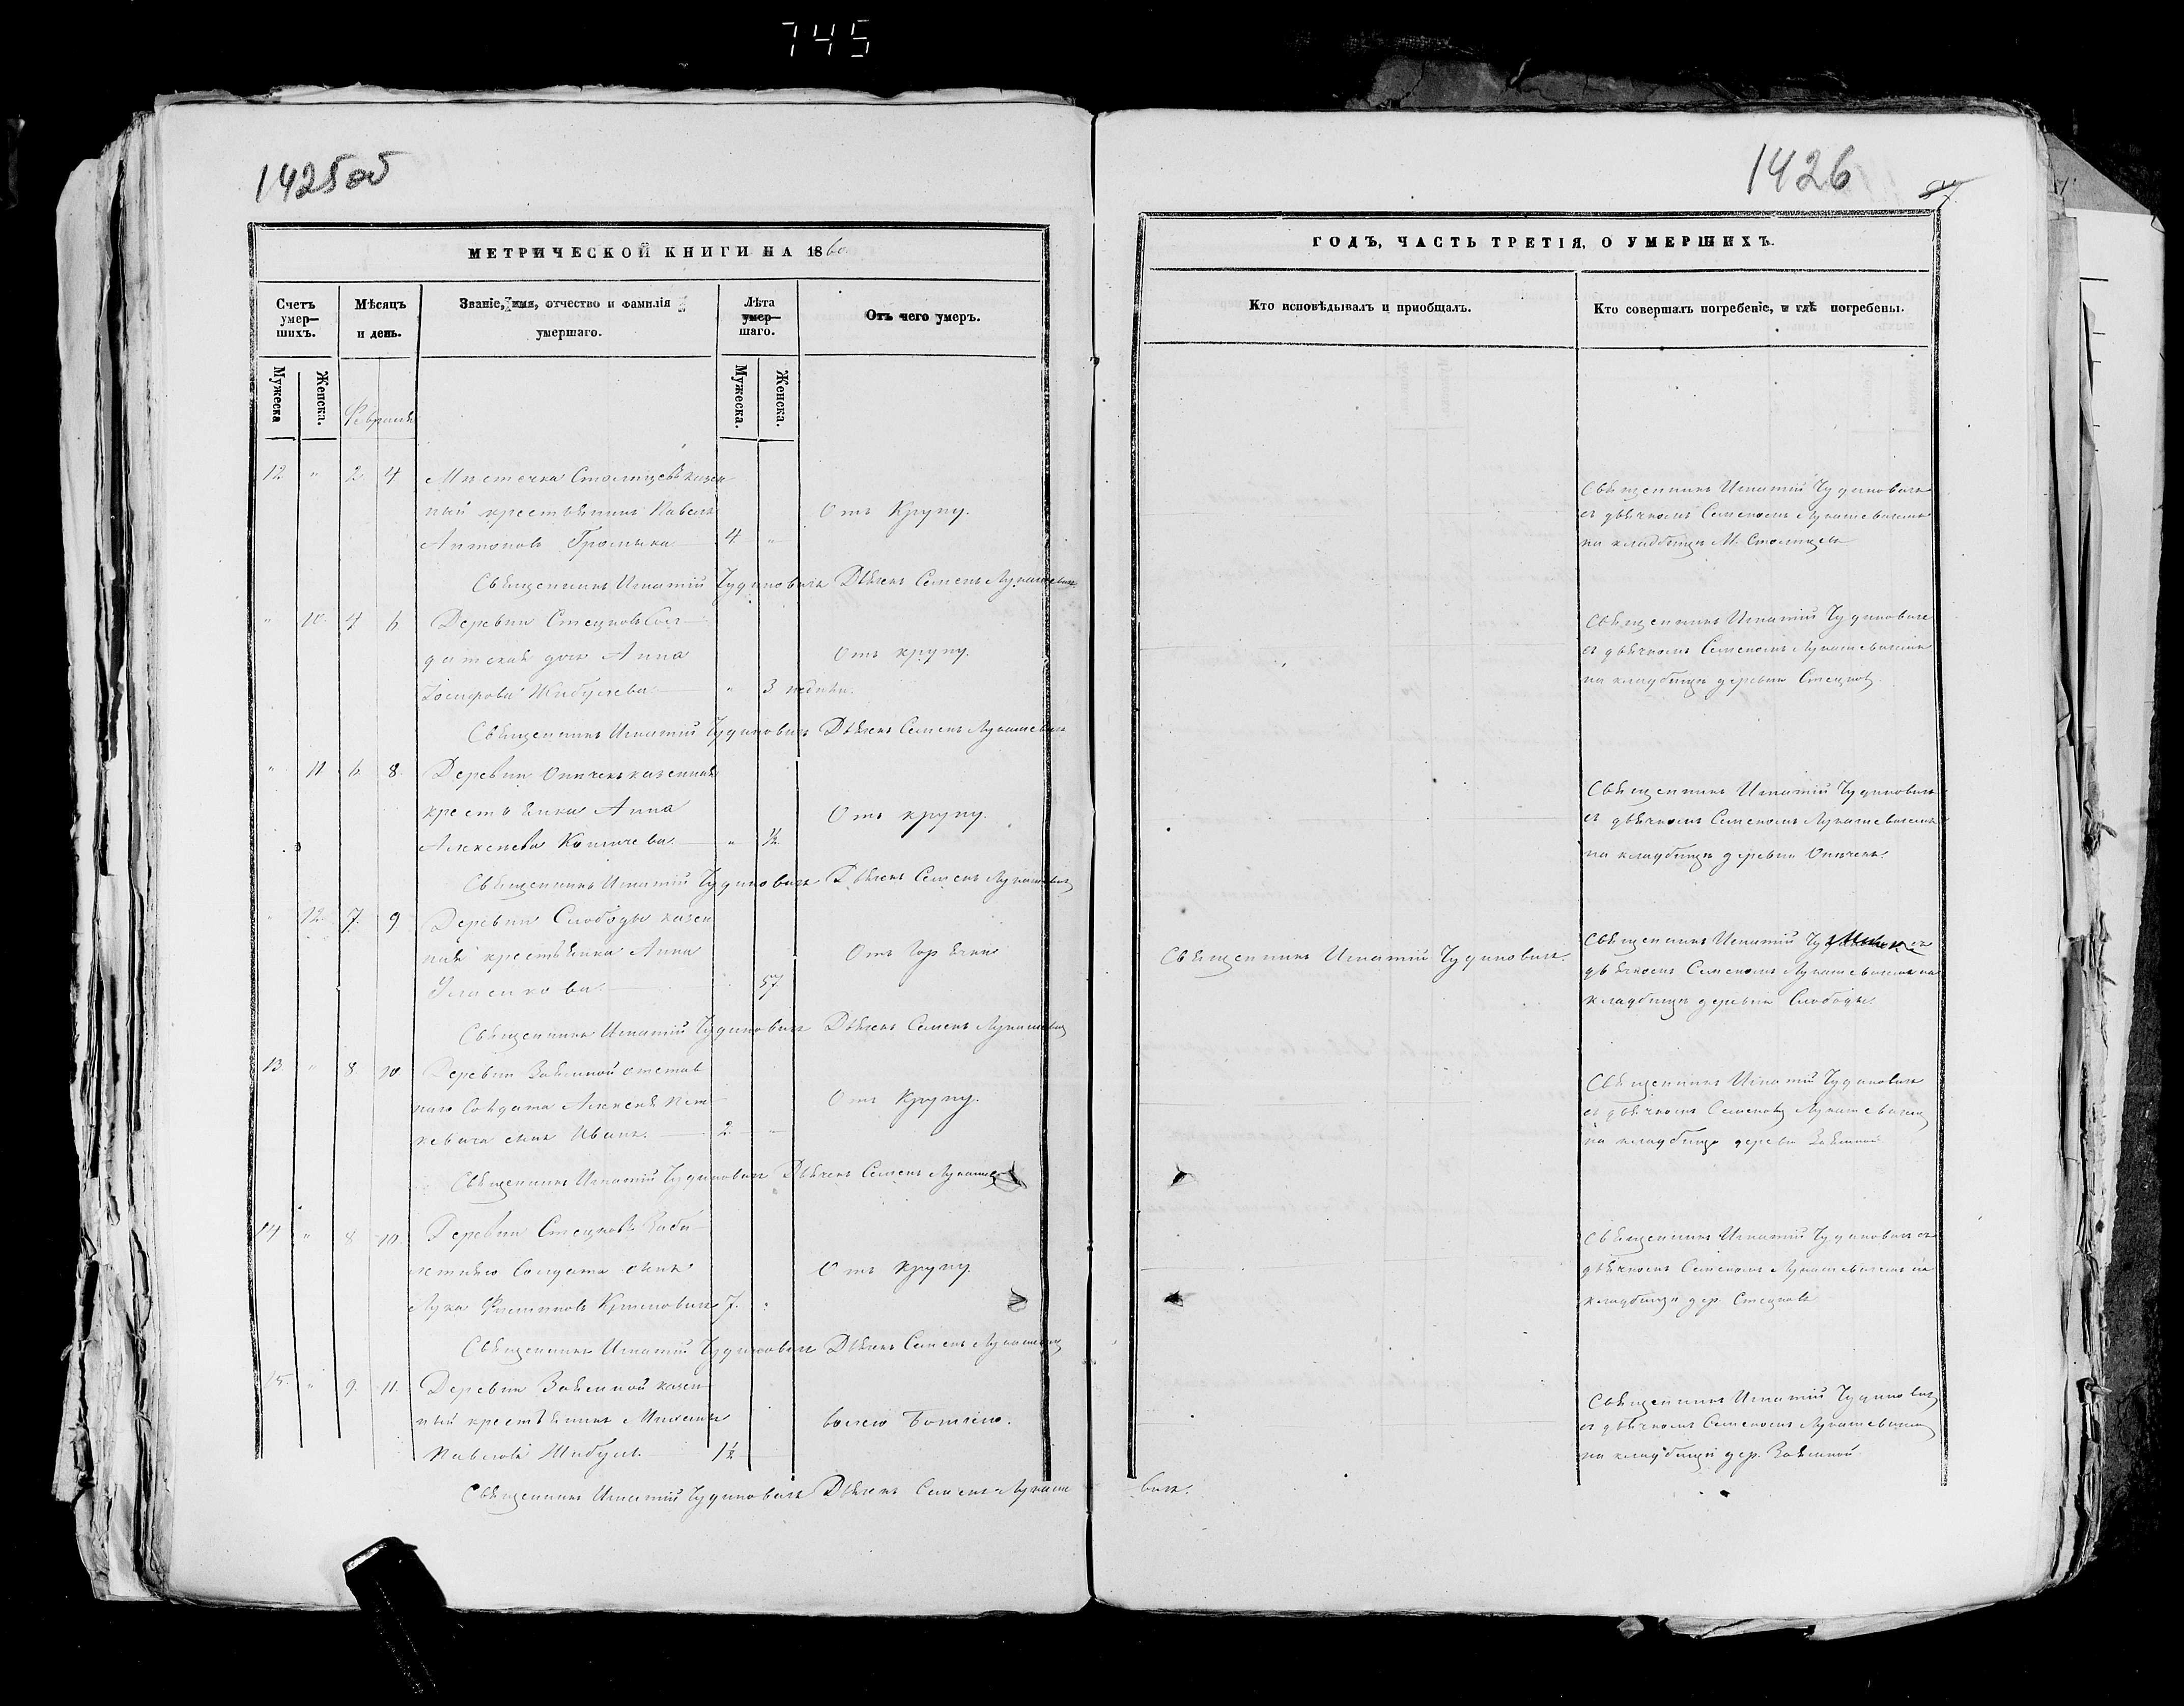 745
1425об
МЕТРИЧЕСКОЙ КНИГИ НА 1860
Счетъ умер-шихъ.
Мѣсяцъ и день.
Званіе, имя, отчество и фамилія умершаго.
Лѣта умер-шаго.
Отъ чего умеръ.
Мужеска
Женска.
Февраля
Мужеска.
Женска.
12 " 2 4 Мѣстечка Столпцевъ казен
ный крестьянинъ Павелъ Отъ Крупу.
Антоновъ Громыка 4 "
Священникъ Игнатій Чудиновичъ Дьячекъ Семенъ Лукашевичъ
" 10 4 6 Деревни Стецковъ Сол-
датская дочь Анна Отъ крупу.
Іосифова Жибулева " 3 недѣли.
Священникъ Игнатій Чудиновичъ Дьячекъ Семенъ Лукашевичъ
" 11 6 8 Деревни Опечекъ казенная
крестьянка Анна Отъ крупу.
Алексѣева " ½
Священникъ Игнатій Чудиновичъ Дьячекъ Семенъ Лукашевичъ
" 12 7 9 Деревни Слободы казен
ная крестьянка Анна Отъ Горячки
57
Священникъ Игнатій Чудиновичъ Дьячекъ Семенъ Лукашевичъ
13 " 8 10 Деревни Заямной отстав
наго Солдата Алексѣя Пет- Отъ Крупу.
кевича сынъ Иванъ. 2 "
Священникъ Игнатій Чудиновичъ Дьячекъ Семенъ Лукашев
14 " 8 10 Деревни Стецковъ
Солдата сынъ Отъ Крупу.
Лука 7 "
Священникъ Игнатій Чудиновичъ Дьячекъ Семенъ Лукашевичъ
15 " 9 11 Деревни Заямной казен-
ный крестьянинъ Михаилъ волею Божіею.
Павловъ Жибуль 1½
Священникъ Игнатій Чудиновичъ Дьячекъ Семенъ Лукаше
1426
ГОДЪ, ЧАСТЬ ТРЕТІЯ, О УМЕРШИХЪ.
Кто исповѣдывалъ и приобщалъ.
Кто совершалъ погребеніе, и гдѣ погребены.
Священникъ Игнатій Чудиновичъ
съ дьячкомъ Семеномъ Лукашевичемъ
на кладбищѣ М. Столпцевъ
Священникъ Игнатій Чудиновичъ
съ дьячкомъ Семеномъ Лукашевичемъ
на кладбищѣ деревни Стецковъ.
Священникъ Игнатій Чудиновичъ
съ дьячкомъ Семеномъ Лукашевичемъ
на кладбищѣ деревни Опечекъ.
Священникъ Игнатій Чудиновичъ.
Священникъ Игнатій съ
дьячкомъ Семеномъ Лукашевичемъ на
кладбищѣ деревни Слободы.
Священникъ Игнатій Чудиновичъ
съ дьячкомъ Семеномъ Лукашевичемъ
на кладбищѣ деревни Заямной
Священникъ Игнатій Чудиновичъ съ
дьячкомъ Семеномъ Лукашевичемъ на
кладбищѣ дер. Стецковъ
Священникъ Игнатій Чудиновичъ
съ дьячкомъ Семеномъ Лукашевичемъ
на кладбищѣ дер. Заямной
вичъ.